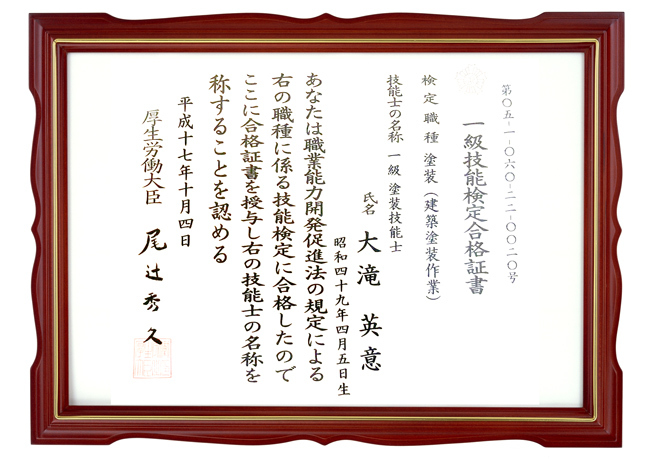 第〇五-一-〇六〇-二二-〇〇二〇号
一級技能検定合格証書
検定職種 塗装(建築塗装作業)
技能士の名称 一級 塗装技能士
氏名 大滝 英意
昭和四十九年四月五日生
あなたは職業能力開発促進法の規定による
右の職種に係る技能検定に合格したので
ここに合格証書を授与し右の技能士の名称を
称することを認める
平成十七年十月四日
厚生労働大臣 尾辻秀久